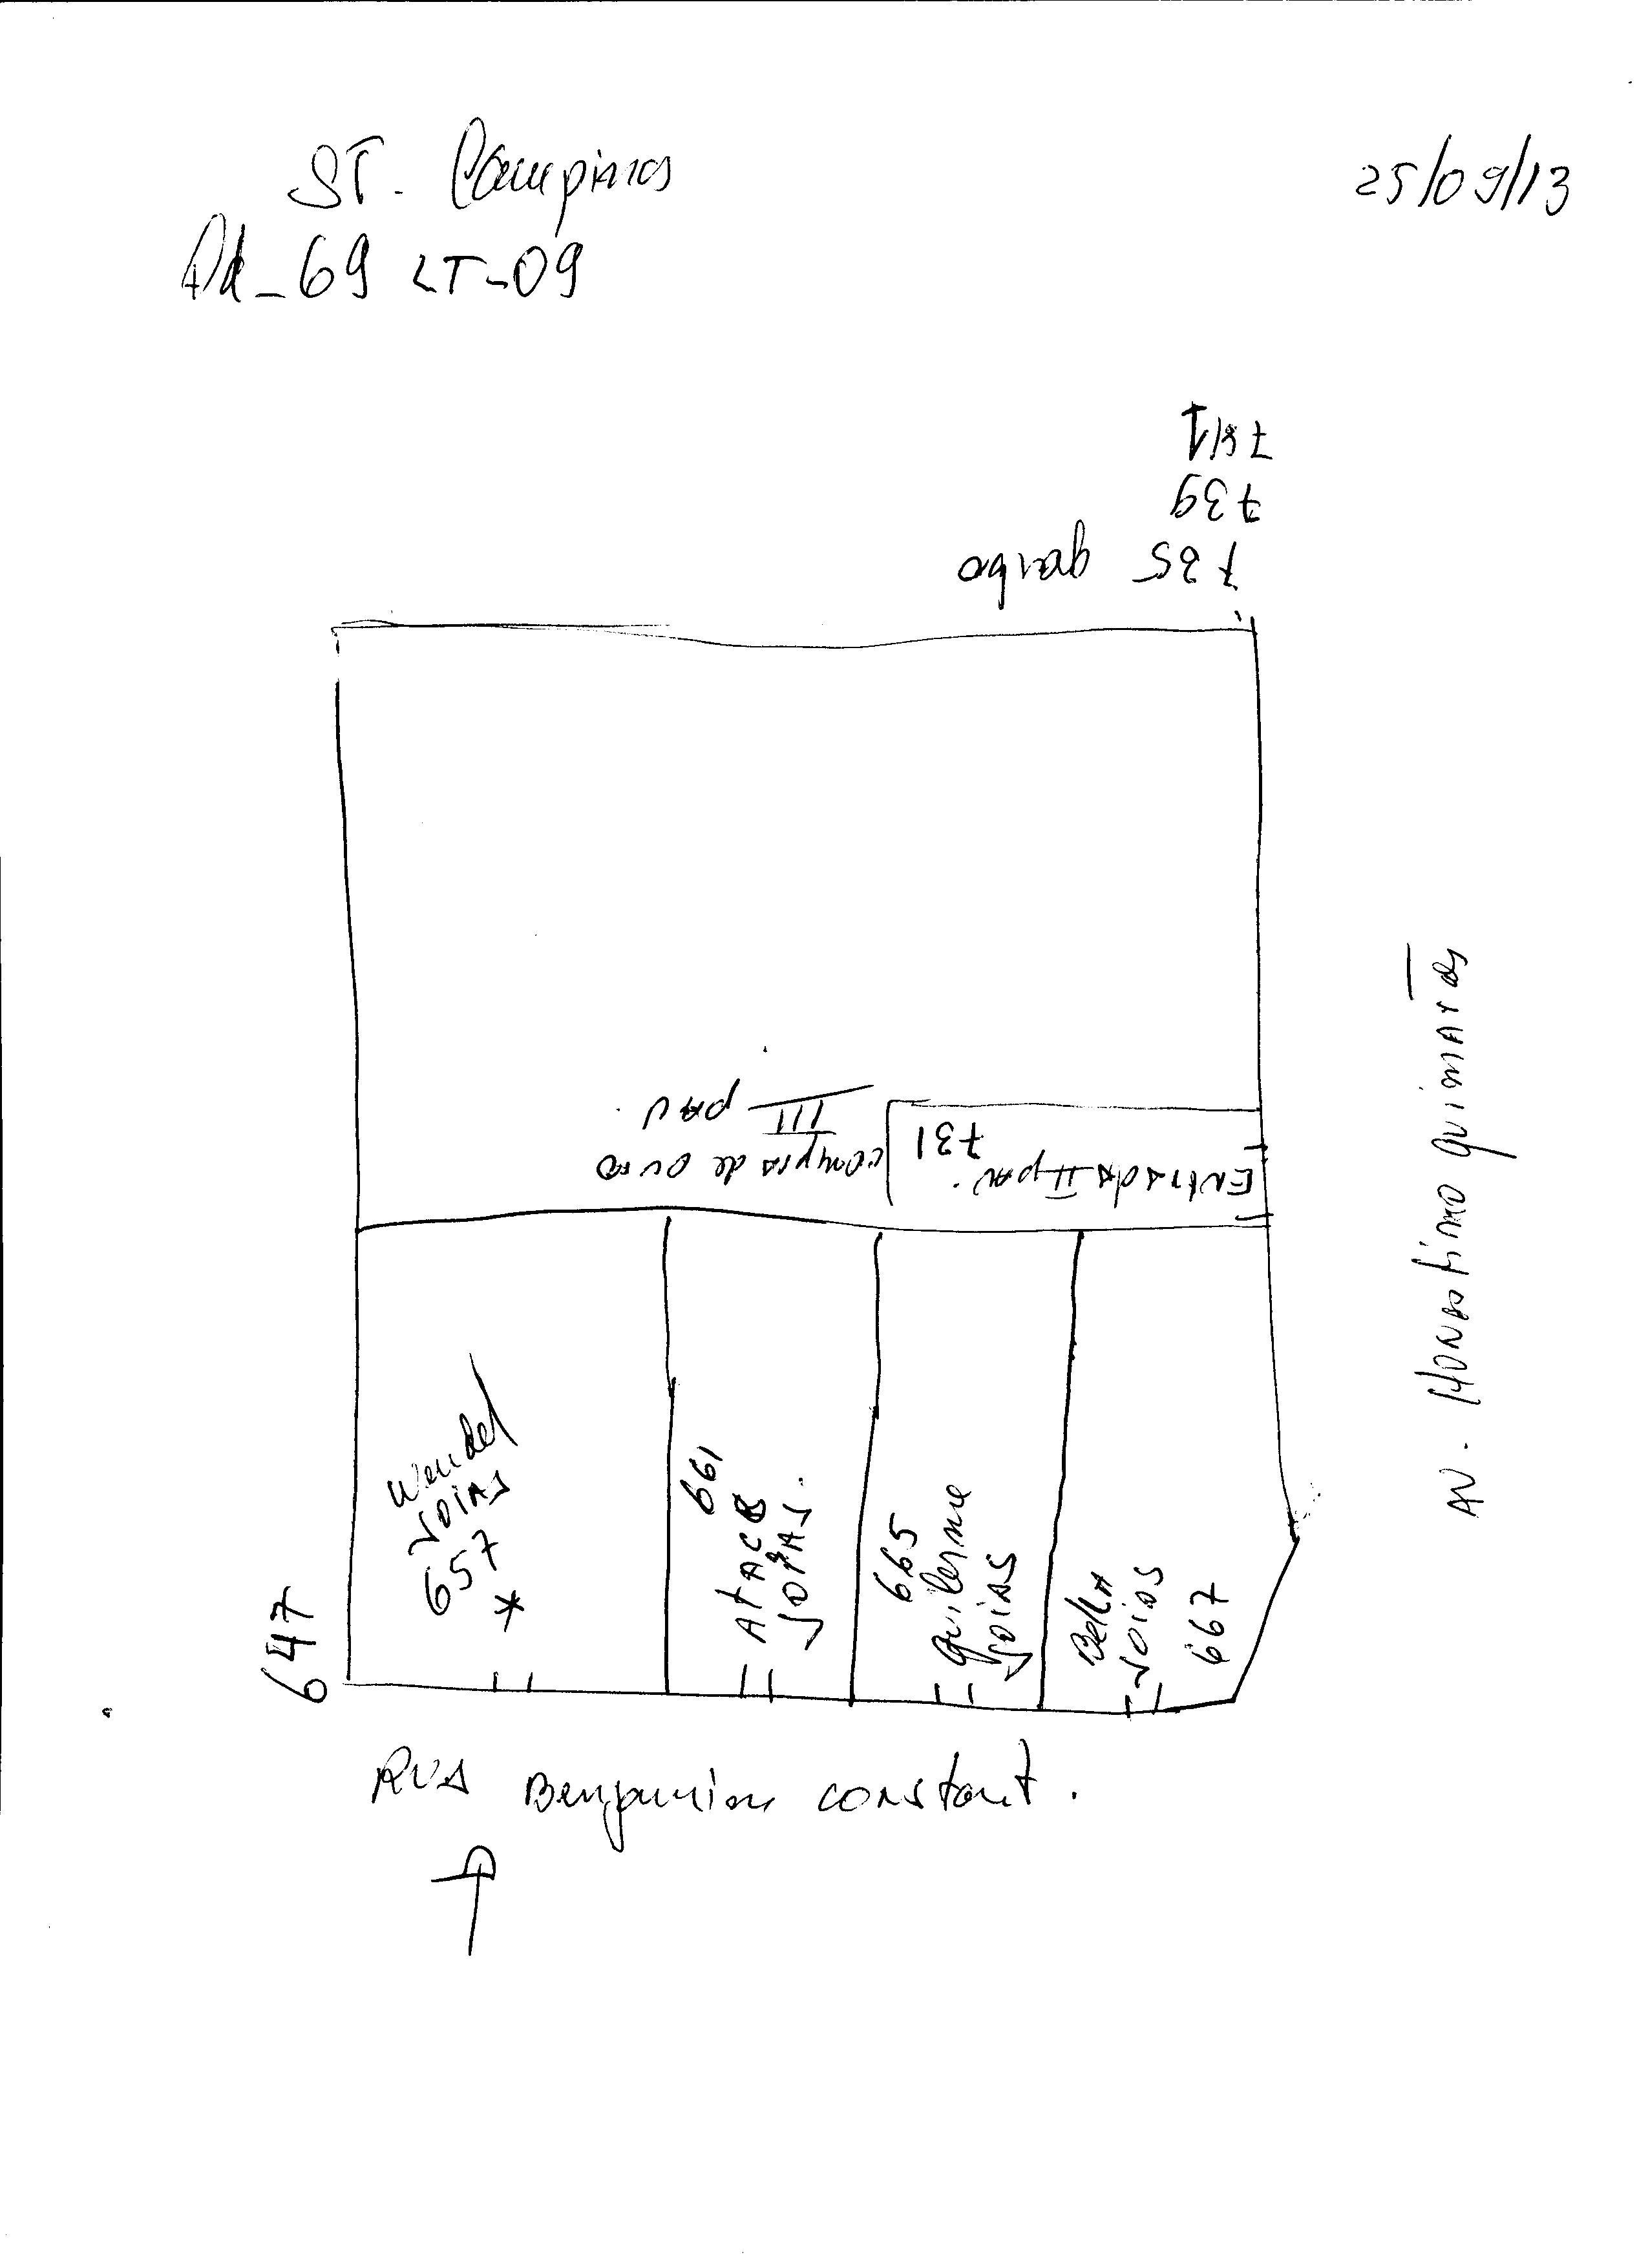 ST. Campinas
25/09/13
Qd - 69 LT - 09
741
739
735 garbo
III pav
compra de ouro
731
Entrada II pav.
Av. Honestino guimarães
Wendel
Joias
657
*
661
Atac
Joias.
665
guilerme
Joias
Bella
Joias
667
647
Rua Benjamim constant.